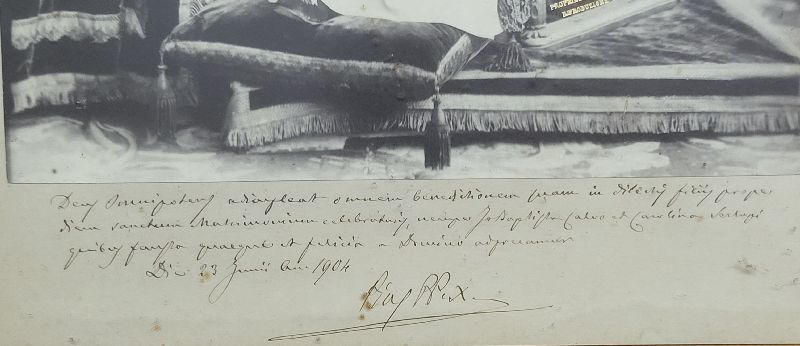 PROPRIE
RIPRODUZIONE
Deus Omnipotens adimpleat omnem benedictionem suam in dilectis filiis prope
diem sanctum Matrimonium celebraturis, nempe Jo Baptista Calvo et Carolina
quibus fausta quaeque et felicia a Domino adprecamur
Die 23 Junii An. 1904
Pius PP. X.